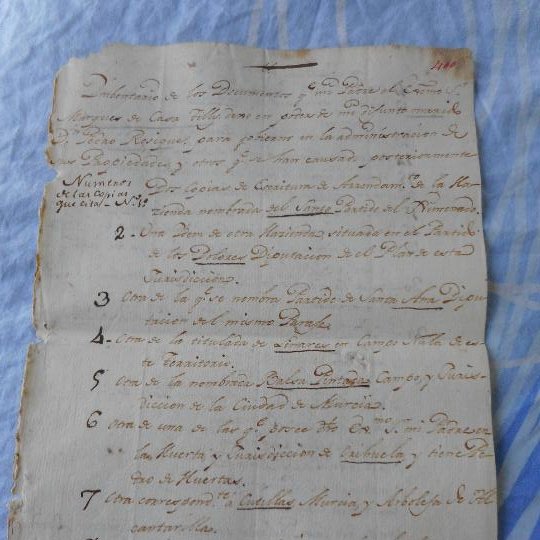 Imbentario de los Documentos q.e mi Padre el Exmo S.r
Marques de Casa Tilly, dexo en poder de mi difunto marido
D.n Pedro Resique, para govierno en la administracion de
sus Propiedades y otros q.e se han causado posteriormente
Numeros
de las Copias
que citas - N.o 1.o
Dos copias de Escritura de Arrendam.to de la Ha-
zienda nombrada del Santo Partido del
2 - Otra Idem de otra Hazienda situada en el Partido
de los Dolores Diputacion de el Plan de esta
Jurisdiccion.
3 Otra de la q.e se nombra Partido de Santa Ana Dipu-
tacion del mismo
4 - Otra de la titulada de Linares en Campo Nubla de es-
te Territorio.
5 Otra de la nombrada Balsa Pintada Campo y Juris-
diccion de la Ciudad de Murcia.
6 Otra de una de las q.e posee dho Ex.mo S.r mi Padre en
la Huerta y Jurisdiccion de Orihuela y tiene Pe-
dro de Huertas.
7 Otra correspond.te a Cutillas Murcia, y Arboleja de Al-
cantarilla.